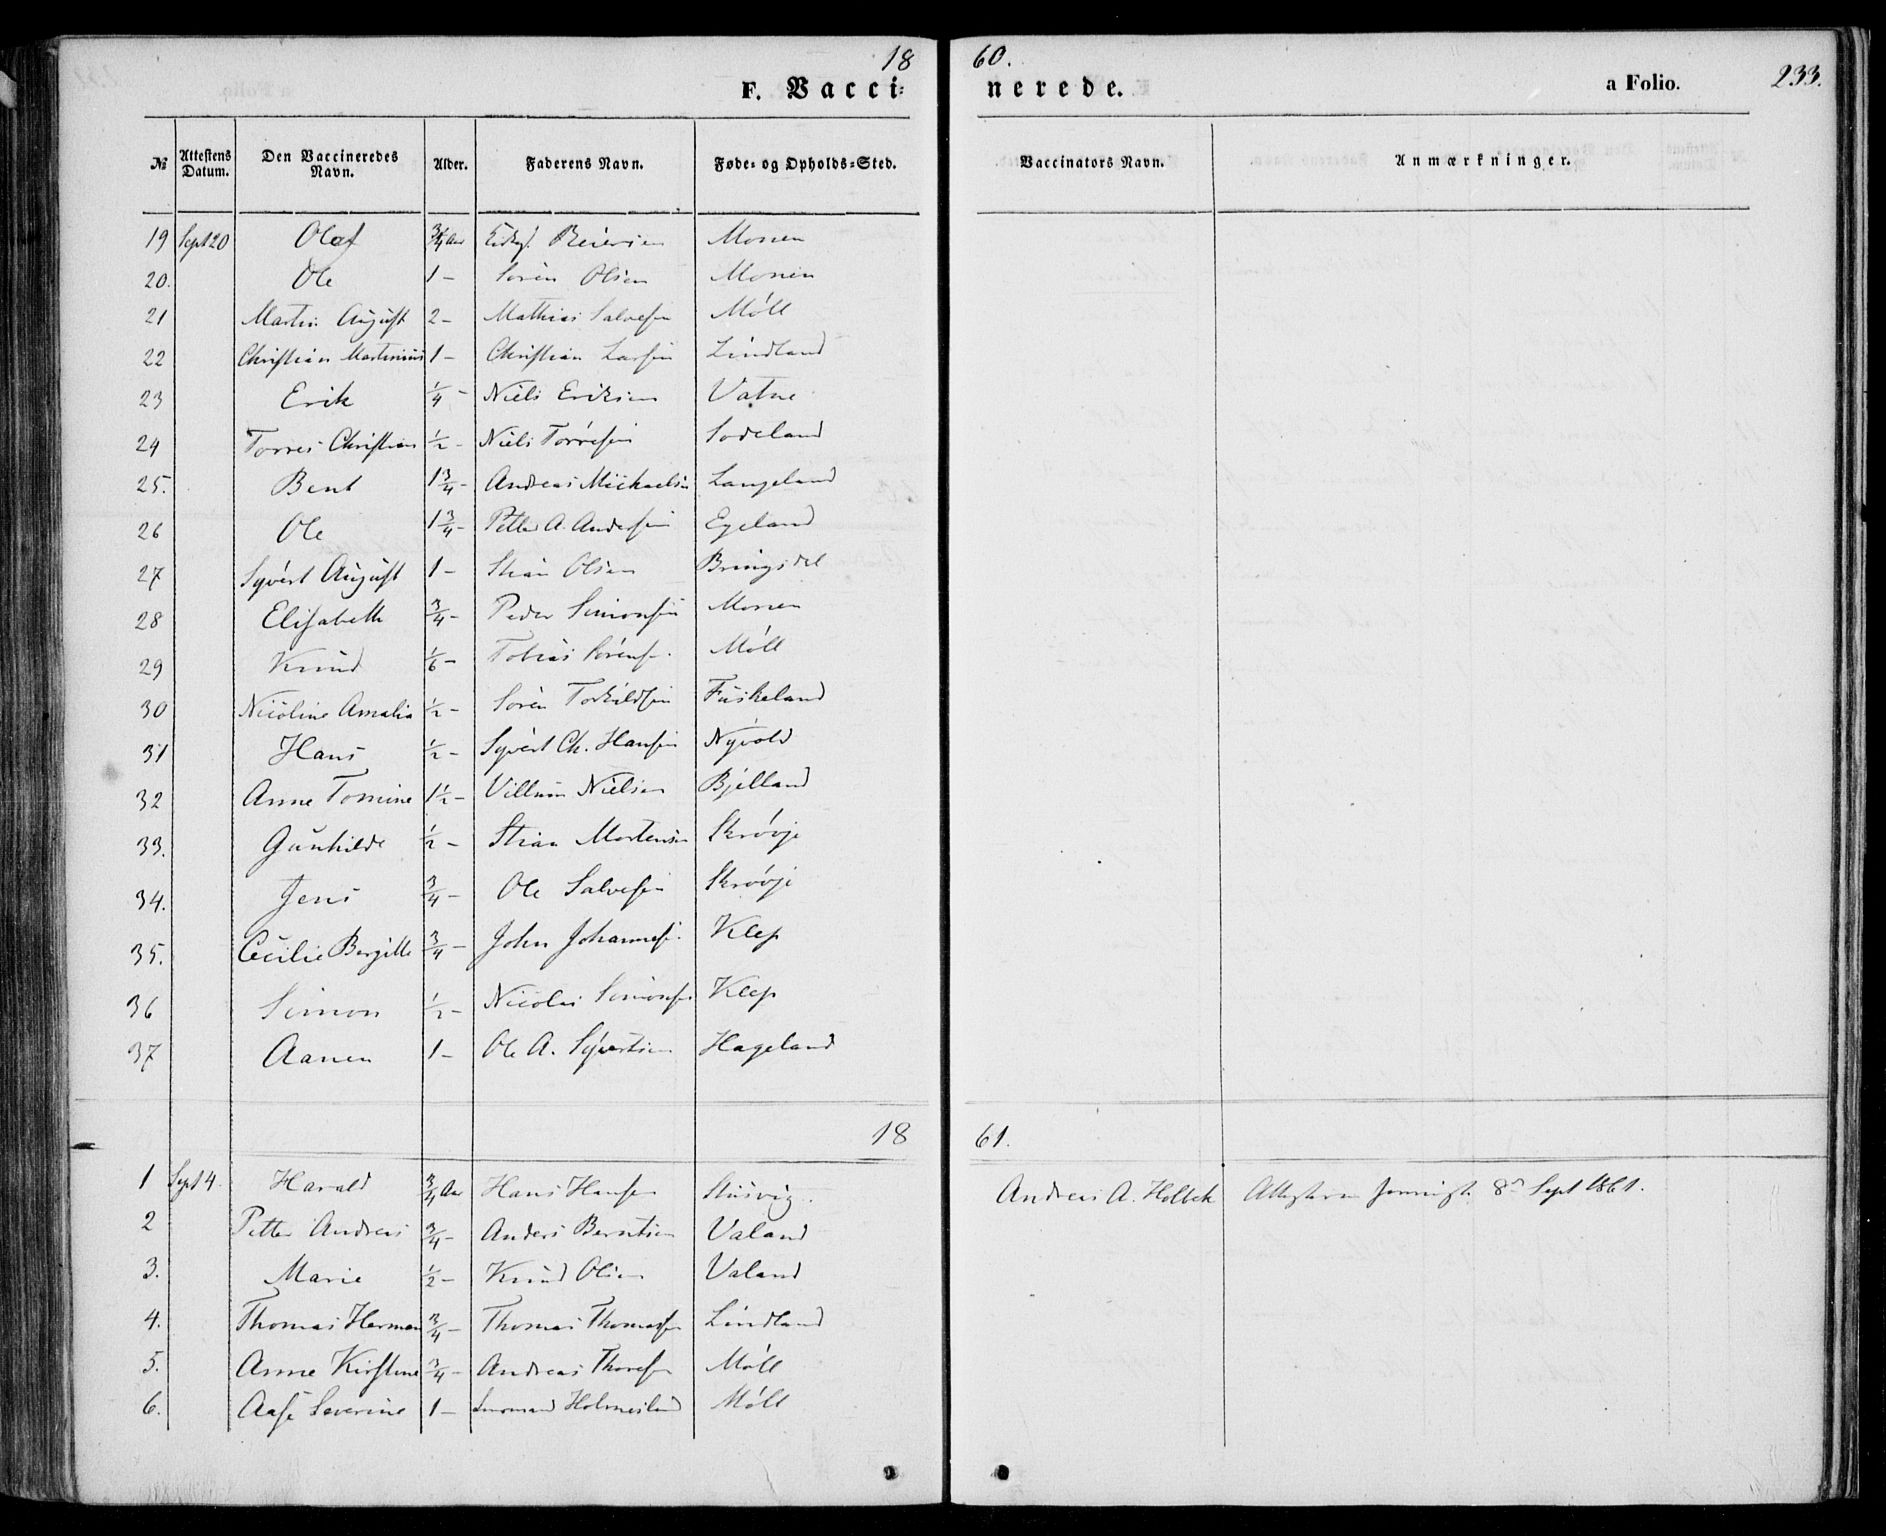 18 60.
F. Vacci- nerede. a Folio. 233.
№ Attestens Datum. Den Vaccineredes Navn. Alder. Faderens Navn. Føde- og Opholds-Sted. Vaccinators Navn. Anmærkninger.
19 Sept 20 Olaf 3/4 Aar Reiersen Monen
20. Ole 1 – Sören Olsen Monen
21 Martin August 2 – Mathias Salvesen Möll
22 Christian Martinius 1 – Christian Larsen Lindland
23 Erik 1/4 – Niels Eriksen Vatne
24 Torres Christian 1/2 – Niels Torresen Sodeland
25. Bent 1 3/4 – Andreas Michaelsen Langeland
26 Ole 1 3/4 – Petter A. Andersen Egeland
27 Syvert August 1 – Stian Olsen Bringsdel
28 Elisabeth 3/4 – Peder Simonsen Monen
29 Knud 1/6 – Tobias Sörens. Möll
30 Nicoline Amalia 1/2 – Sören Torkildsen Fuskeland
31 Hans 1/2 – Syvert Ch. Hansen Nyvold
32 Anne Tomine 1 1/2 – Villum Nielsen Bjelland
33. Gunhilde 1/2 – Stian Mortensen Skrövje
34. Jens 3/4 – Ole Salvesen Skrövje
35. Cecilie Bergitte 3/4 – John Johannes. Klep
36 Simon 1/2 – Nicolai Simonsen Klep
37 Aanen 1 – Ole A. Syvertsen Hageland
18 61.
1 Sept 4. Harald 3/4 Aar Hans Hansen Stusvig. Andreas A. Holbek 8de Sept 1861.
2 Petter Andreas 3/4 – Anders Berntsen Valand
3. Marie 1/2 – Knud Olsen Valand
4. Thomas Herman 3/4 – Thomas Thomassen Lindland
5. Anne Kirstine 3/4 – Andreas Thoresen Möll
6. Aase Severine 1 – Möll